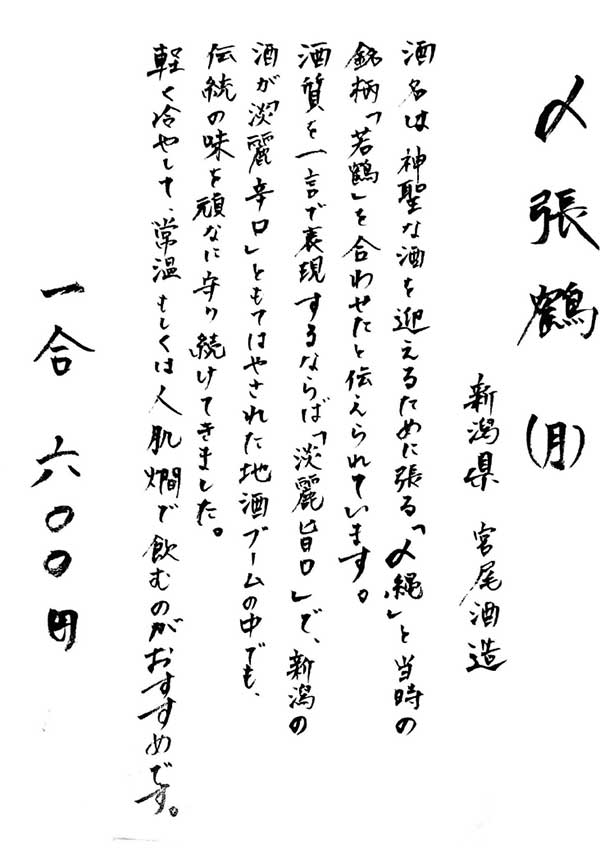 〆張鶴(月)
新潟県 宮尾酒造
酒名は神聖な酒を迎えるために張る「〆縄」と当時の
銘柄「若鶴」を合わせたと伝えられています。
酒質を一言で表現するならば「淡麗旨口」で、新潟の
酒が「淡麗辛口」ともてはやされた地酒ブームの中でも、
伝統の味を頑なに守り続けてきました。
軽く冷やして、常温もしくは人肌燗で飲むのがおすすめです。
一合 六〇〇円